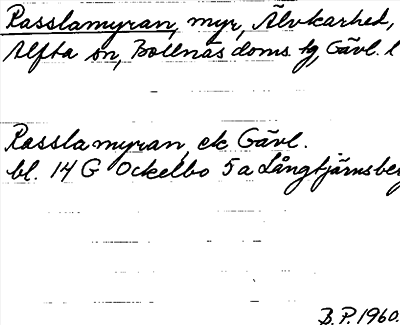 Rasslamyran, myr, Älvkarhed,
Alfta sn, Bollnäs doms. tg, Gävl. l
Rasslamyran, ek Gävl.
bl. 14 G Ockelbo 5 a Långtjärnsber
B.P. 1960.